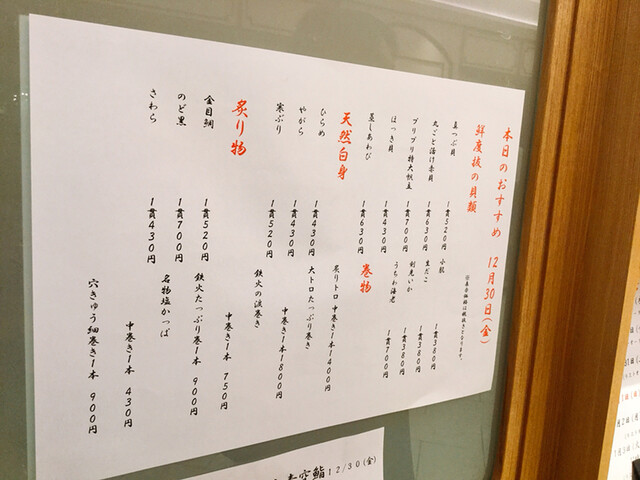 本日のおすすめ 12月30日(金)
※表示価格は税抜きとなります。
鮮度抜の貝類
真つぶ貝 1貫520円
丸ごと漬け赤貝 1貫630円
プリプリ特大帆立 1貫700円
ほっき貝 1貫430円
蒸しあわび 1貫630円
小肌 1貫380円
生だこ 1貫380円
剣先いか 1貫380円
うちわ海老 1貫700円
天然白身
ひらめ 1貫430円
やがら 1貫430円
寒ぶり 1貫520円
炙り物
金目鯛 1貫520円
のど黒 1貫700円
さわら 1貫430円
巻物
炙りトロ 中巻き1本1400円
大トロたっぷり巻き
中巻き1本1800円
鉄火の涙巻き
中巻き1本 750円
鉄火たっぷり巻1本 900円
名物塩かっぱ
中巻き1本 430円
穴きゅう細巻き1本 900円
12/30(金)